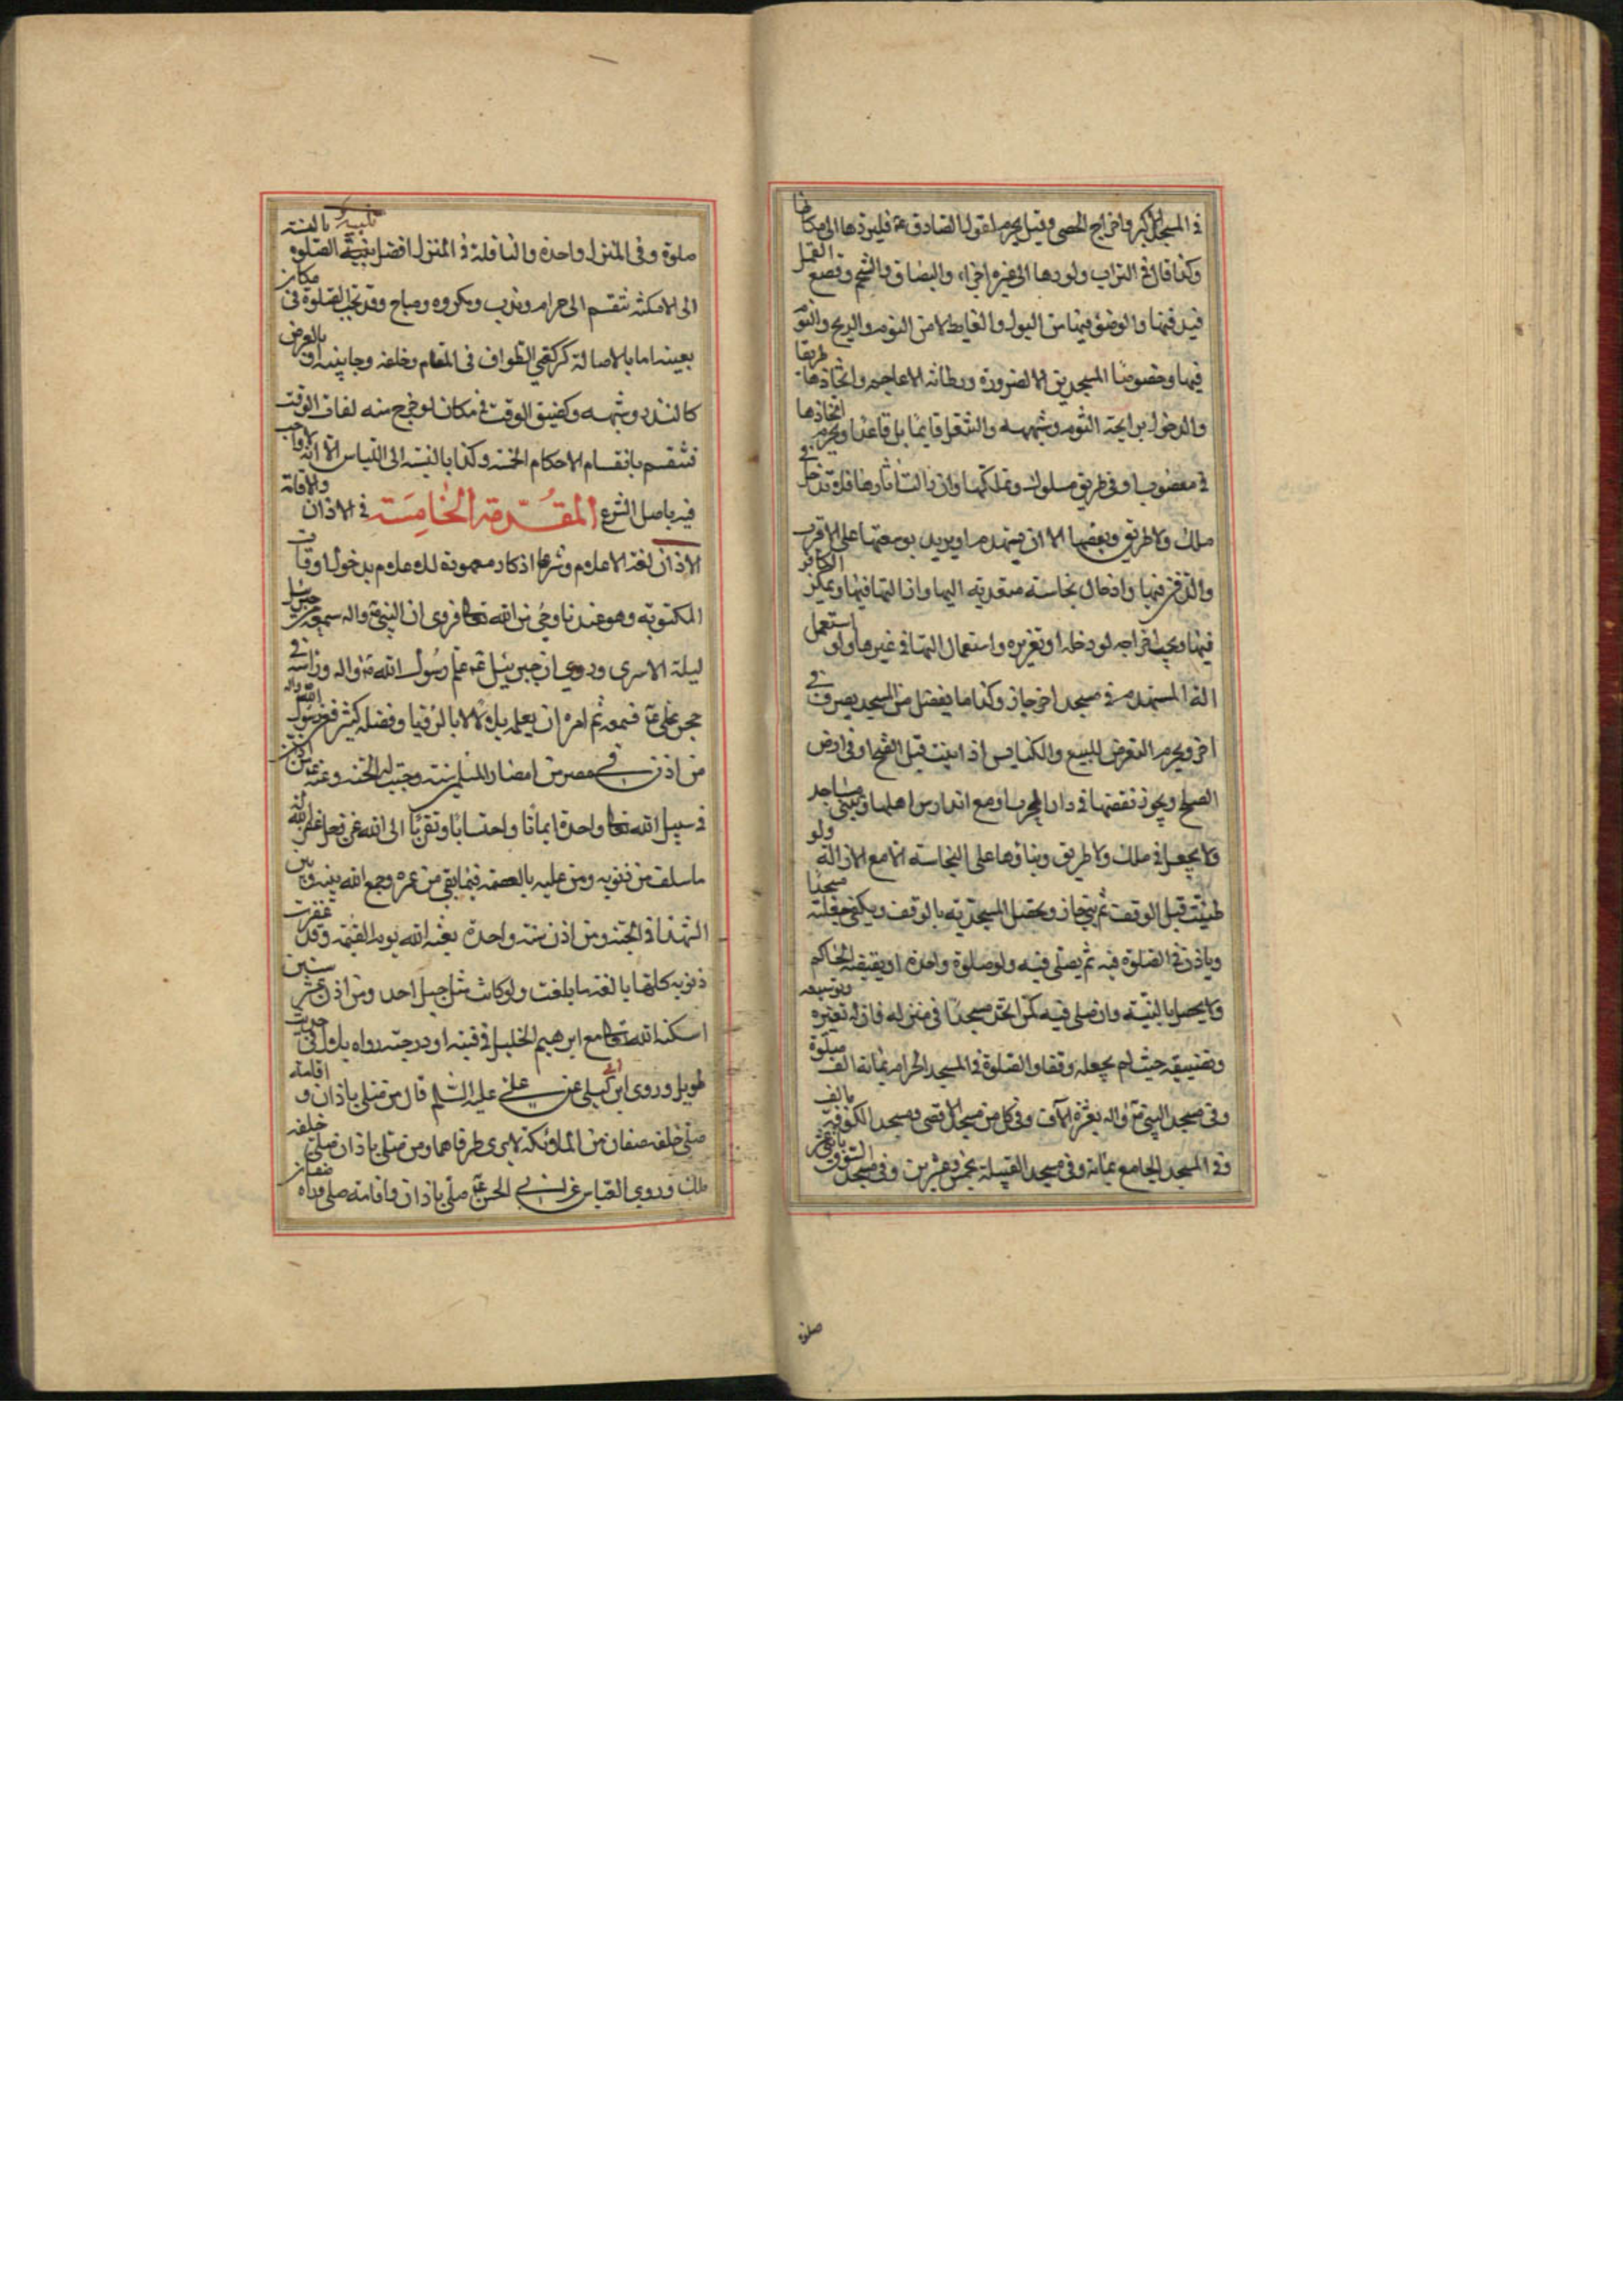 في المسجد الاكبر واخراج الحصى وقيل يحرم لقول الصادق ع فليردها الى مكانها
وكذا قال في التراب ولو ردها الى غيره اجزاء والبصاق والتنخم وقصع القمل
فيدفنها والوضؤ فيها من البول والغايط لا من النوم والريح والنوم
فيها وخصوصا المسجدين الا لضرورة ورطانة الاعاجم واتخاذها طريقا
والدخول برايحة الثوم وشبهه والتنعل قايما بل قاعدا ويحرم اتخاذها
في مغصوب او في طريق مسلوك وتملكها وان زالت اثارها فلا تدخل في
ملك ولا طريق وبعضها الا ان ينهدم او يريد توسعتها على الاقرب
والدفن فيها وادخال نجاسة متعدية اليها وازالتها فيها وتمكين الكافر
فيها ويجب اخراجه لو دخل او تغريره واستعمال التها في غيرها ولو استعمل
الة المستهدم في مسجد اخر جاز وكذا ما يفضل من المسجد يصرف في
اخر ويحرم التعرض للبيع والكنايس اذا بنيت قبل الفتح او في ارض
الصلح ويجوز نقضها في دار الحرب او مع اندارس اهلها وتبنى مساجد
ولا يجعل في ملك ولا طريق وبناؤها على النجاسة الا مع الازالة ولو
طينت قبل الوقف ثم بني جاز ويحصل المسجدية بالوقف ويكفي جعلته مسجدا
وياذن في الصلوة فيه ثم يصلى فيه ولو صلوة واحدة او يقبضه الحاكم
ولا يحصل بالنية وان صلى فيه كمن اتخذ مسجدا في منزله فان له تغيره وتوسيعه
وتضييقه حيث لم يجعله وقفا والصلوة في المسجد الحرام بمائة الف صلوة
وفي مسجد النبي ص واله بعشرة الاف وفي كل من مسجد الاقصى ومسجد الكوفة بالف
وفي المسجد الجامع بمائة وفي مسجد القبيلة بخمس وعشرين وفي مسجد السوق باثنى عشر
صلوة
صلوة وفي المنزل واحدة والنافلة في المنزل افضل تنبيه الصلوة بالنسبة
الى الامكنة تنقسم الى حرام وندب ومكروه ومباح وقد تجب الصلوة في مكان
بعينه اما بالاصالة كركعتي الطواف في المقام وخلفه وجانبيه او بالعرض
كالنذر وشبهه وكضيق الوقت في مكان لو خرج منه لفات الوقت
تنقسم بانقسام الاحكام الخمسة وكذا بالنسبة الى اللباس الا انه لا واجب
فيه باصل الشرع المقدمة الخامسة في الاذان والاقامة
الاذان لغة الاعلام وشرعا اذكار معهودة للاعلام بدخول اوقات
المكتوبة وهو عندنا وحي من الله تعالى فروى ان النبي ص واله سمعه من جبرئيل
ليلة الاسرى وروي ان جبرئيل ع علم رسول الله ص واله وراسه في
حجر علي ع فسمعه ثم امره ان يعلمه بلالا بالرفيا وفضله كثير فعن رسول الله ص واله
من اذن في مصر من امصار المسلمين سنة وجبت له الجنة وعنه ع من اذن
في سبيل الله تعالى واحدة ايمانا واحتسابا وتقربا الى الله عز وجل غفر الله له
ما سلف من ذنوبه ومن عليه بالعصمة فيما بقي من عمره وجمع الله بينه وبين
الشهداء في الجنة ومن اذن سنة واحدة بعثه الله يوم القيمة وقد غفرت
ذنوبه كلها بالغة ما بلغت ولو كانت مثل جبل احد ومن اذن عشر سنين
اسكنه الله تعالى مع ابرهيم الخليل في قبته او درجته رواه بلال في حديث
طويل وروى ابن ابي ليلى عن علي عليه السلم قال من صلى باذان و اقامة
صلى خلفه صفان من الملائكة لا يرى طرفاهما ومن صلى باذان صلى خلفه
ملك وروي العباس عن ابي الحسن ع من صلى باذان واقامة صلى وراه صفان